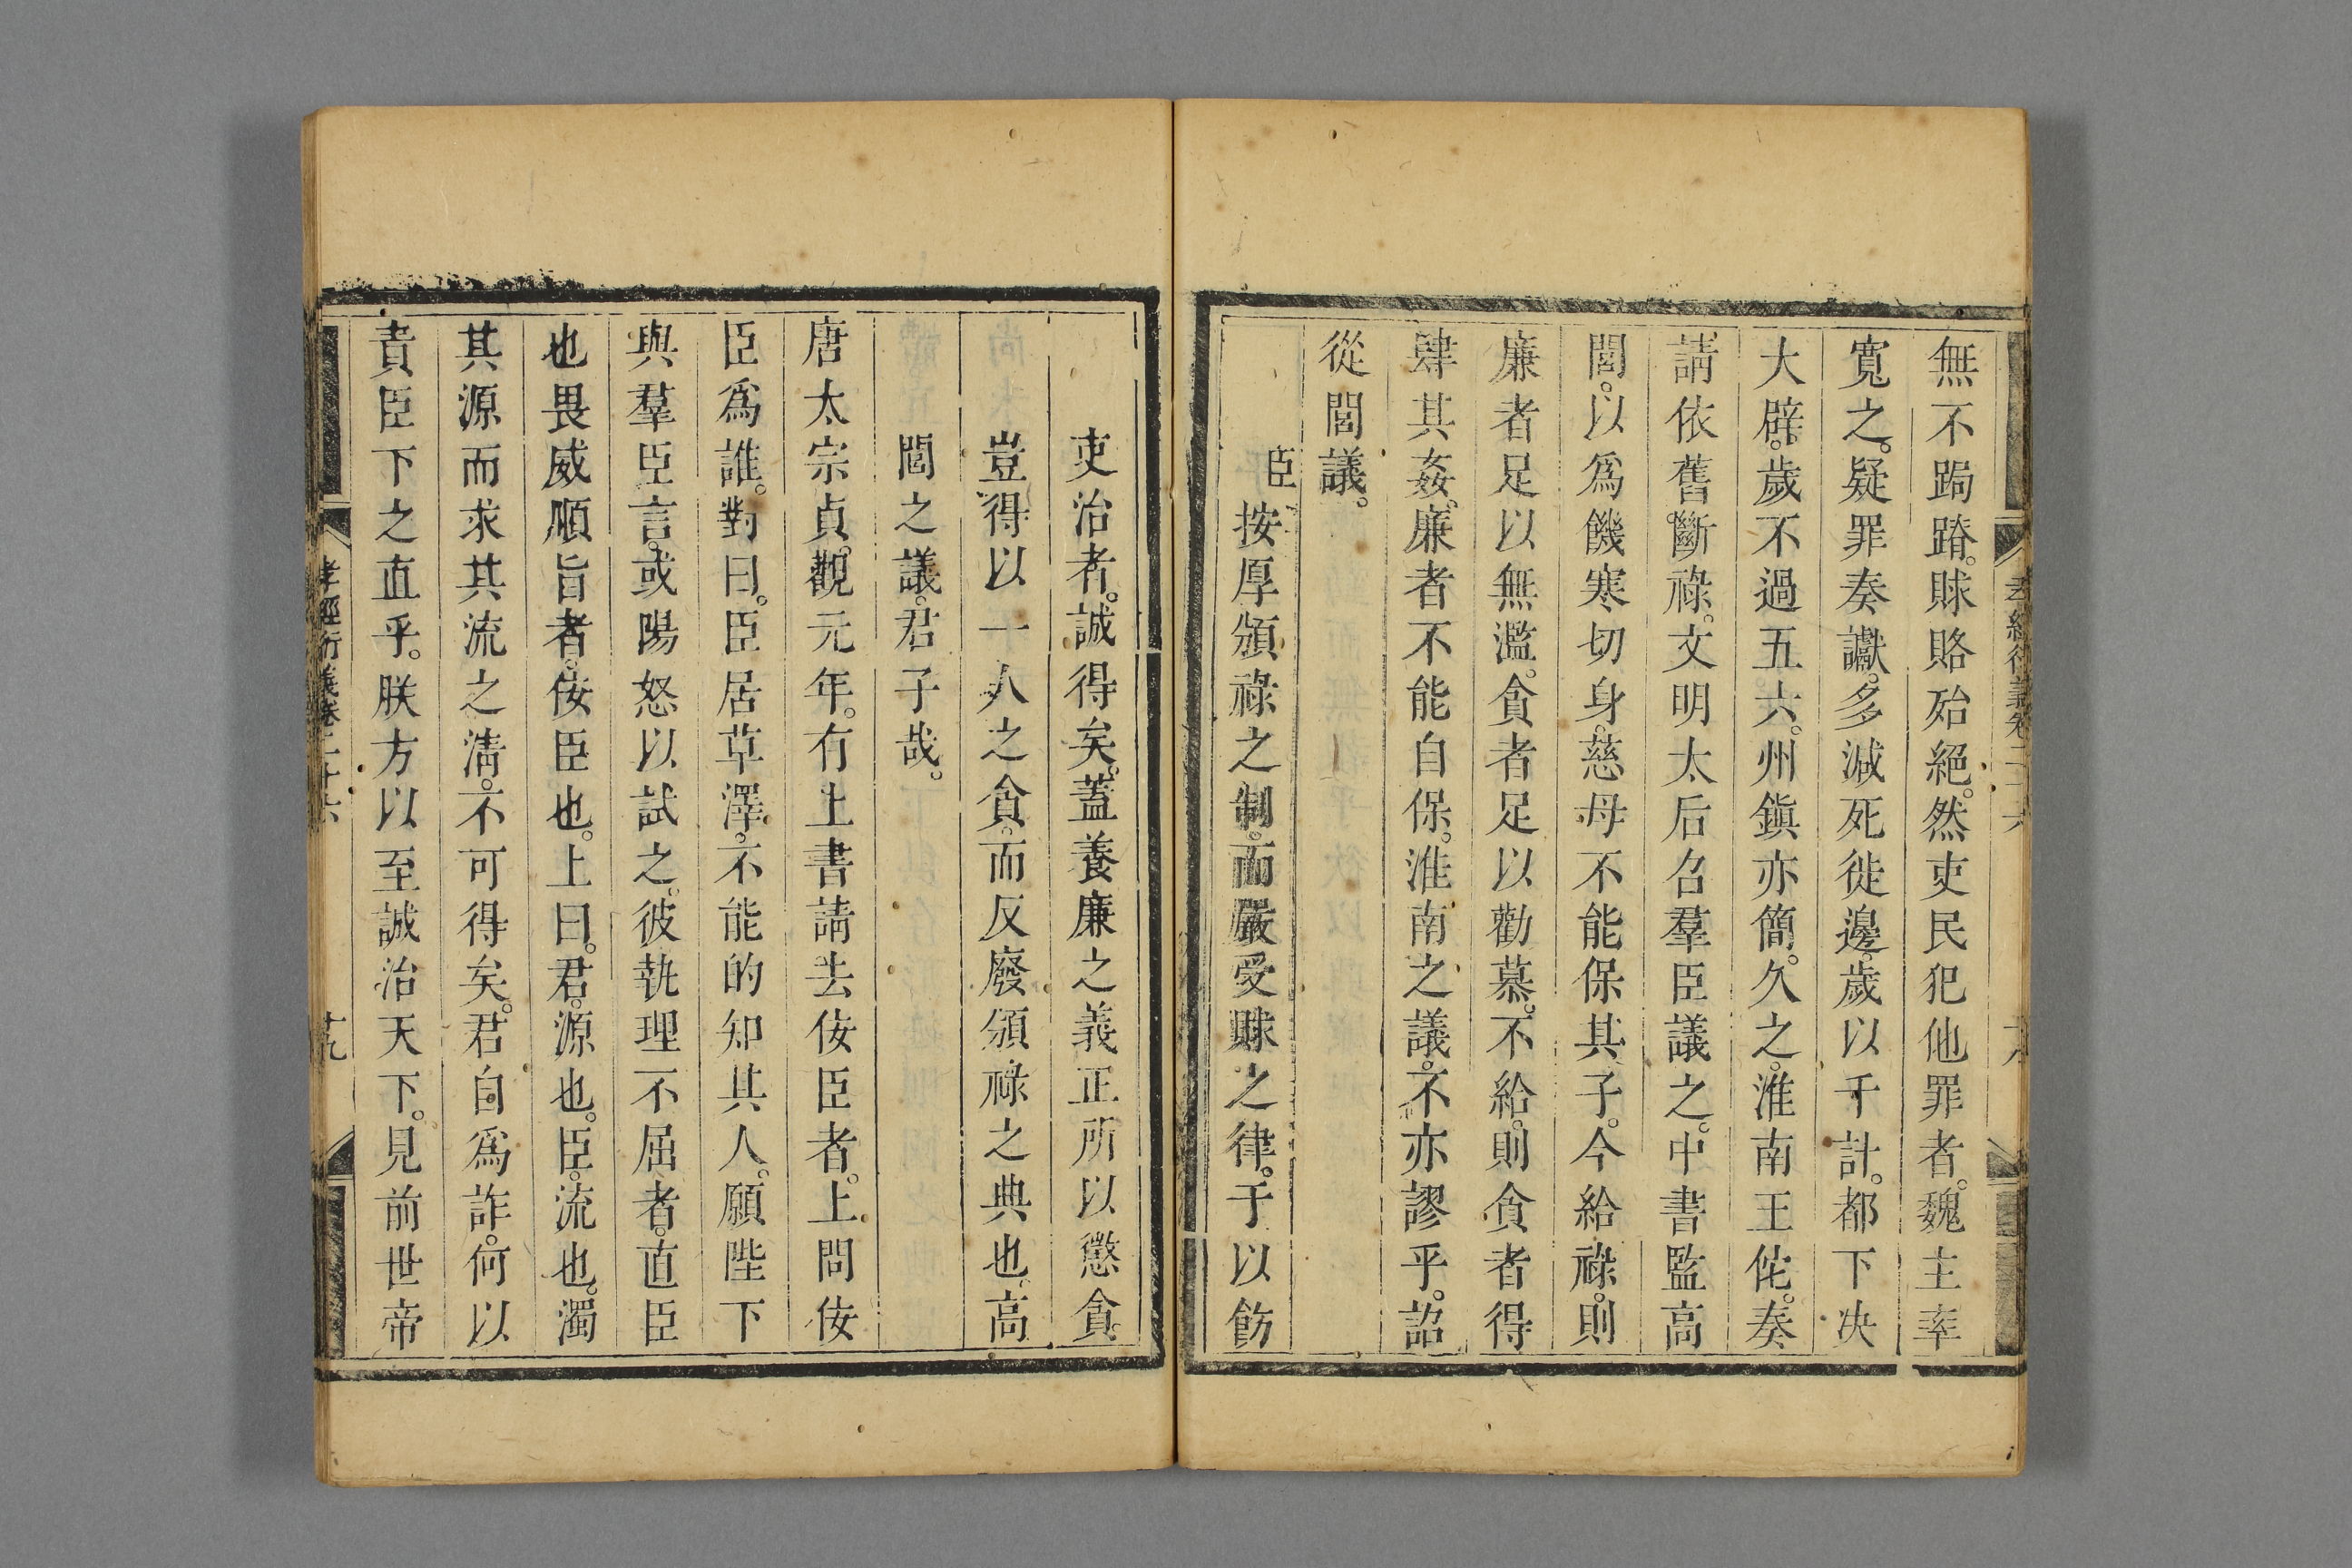 無不跼蹐。賕賂殆絕。然吏民犯他罪者。魏主率
寬之。疑罪奏讞。多減死徙邊。歲以千計。都下决
大辟。歲不過五六。州鎭亦簡。久之。淮南王佗。奏
請依舊。斷祿。文明太后召羣臣議之。中書監高
閭。以爲饑寒切身。慈母不能保其子。今給祿。則
廉者足以無濫。貪者足以勸慕。不給。則貪者得
肆其姦。廉者不能自保。淮南之議。不亦謬乎。詔
從閭議。
臣按厚頒祿之制。而嚴受賕之律。于以飭
吏治者。誠得矣。蓋養廉之義正所以懲貪
豈得以一人之貪。而反廢頒祿之典也。高
閭之議。君子哉。
唐太宗貞。觀元年。有上書請去佞臣者。上問佞
臣爲誰。對曰。臣居草澤。不能的知其人。願陛下
與羣臣言。或陽怒以試之。彼執理不屈者。直臣
也畏威順旨者。佞臣也。上曰。君。源也。臣。流也。濁
其源而求其流之淸。不可得矣。君自爲詐。何以
責臣下之直乎。朕方以至誠治天下。見前世帝
孝經衍義卷二十六
十九